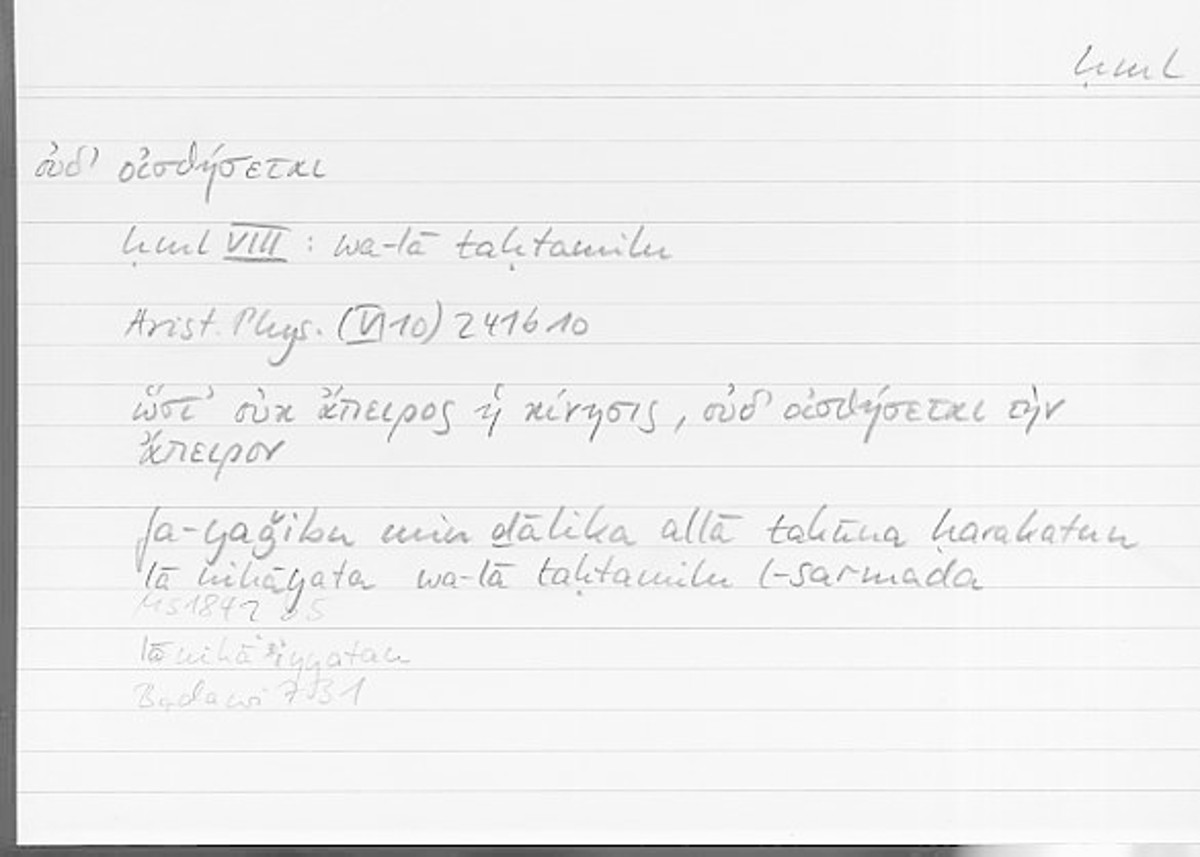 ḥml
οὐδ' οἰσθήσεται
ḥml VIII : wa-lā taḥtamilu
Arist. Phys. (VI 10) 241b10
ὥστ' οὐκ ἄπειρος ἡ κίνησις, οὐδ' οἰσθήσεται τὴν
ἄπειρον
fa-yaǧibu min ḏālika allā takūna ḥarakatun
lā nihāyata wa-lā taḥtamilu l-sarmada
MS184
lā nihā'iyyatan
Badawi 731